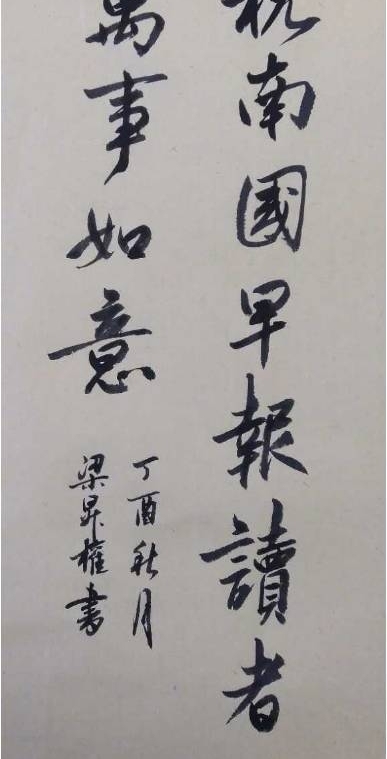 祝南國早報讀者
萬事如意
丁酉秋月
梁昇權書